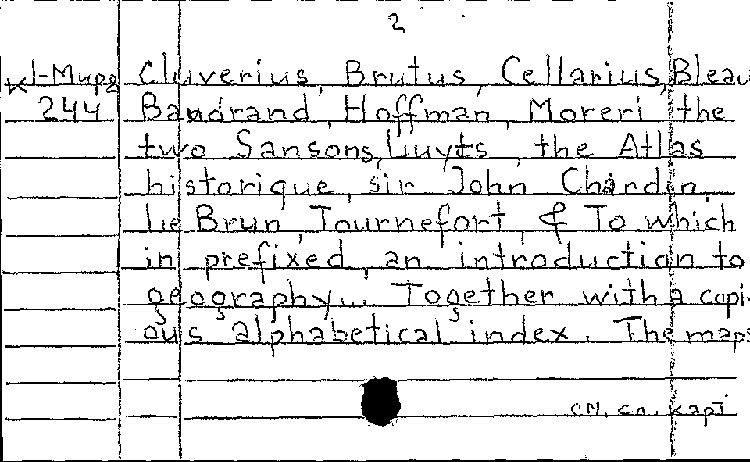 2
Cluverius, Brutus, Cellarius, Bleau
244 Baudrand, Hoffman, Moreri the
two Sansons, Luyts, the Atlas
historique, sir John Chardin,
Le Brun, Tournefort, & To which
in prefixed, an introduction to
geography... Together with a copi-
ous alphabetical index. The maps